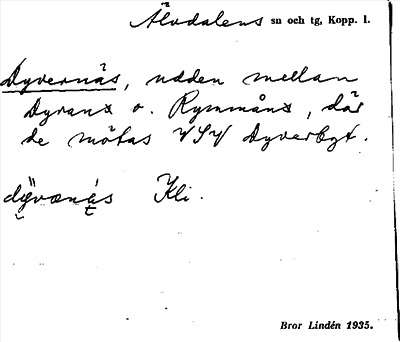 Älvdalens sn och tg, Kopp. l.
Dyvernäs, udden mellan
Dyran o. Rymmån, där
de mötas VSV Dyverbyt.
Kli.
Bror Lindén 1935.